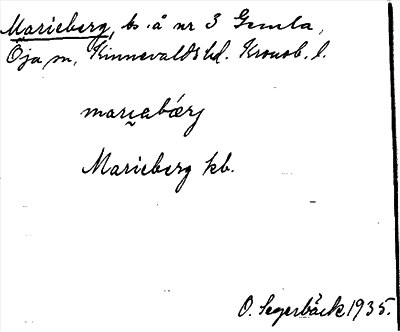 Marieberg, bs. å nr 3 Gemla,
Öja sn, Kinnevalds hd. Kronob. l.
mari̯abǽrj
Marieberg kb.
O. Segerbäck 1935.